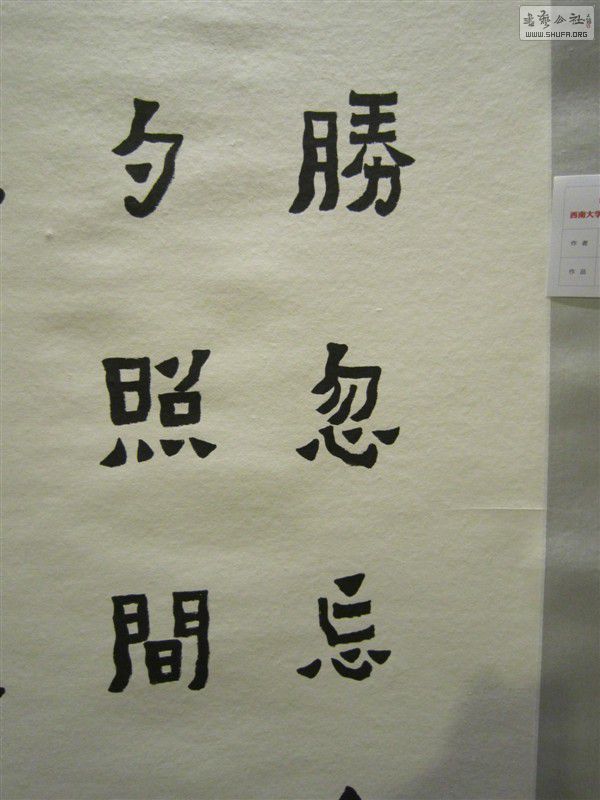 勝忽忘
夕照間
西南大学
作者
作品
书艺公社
WWW.SHUFA.ORG